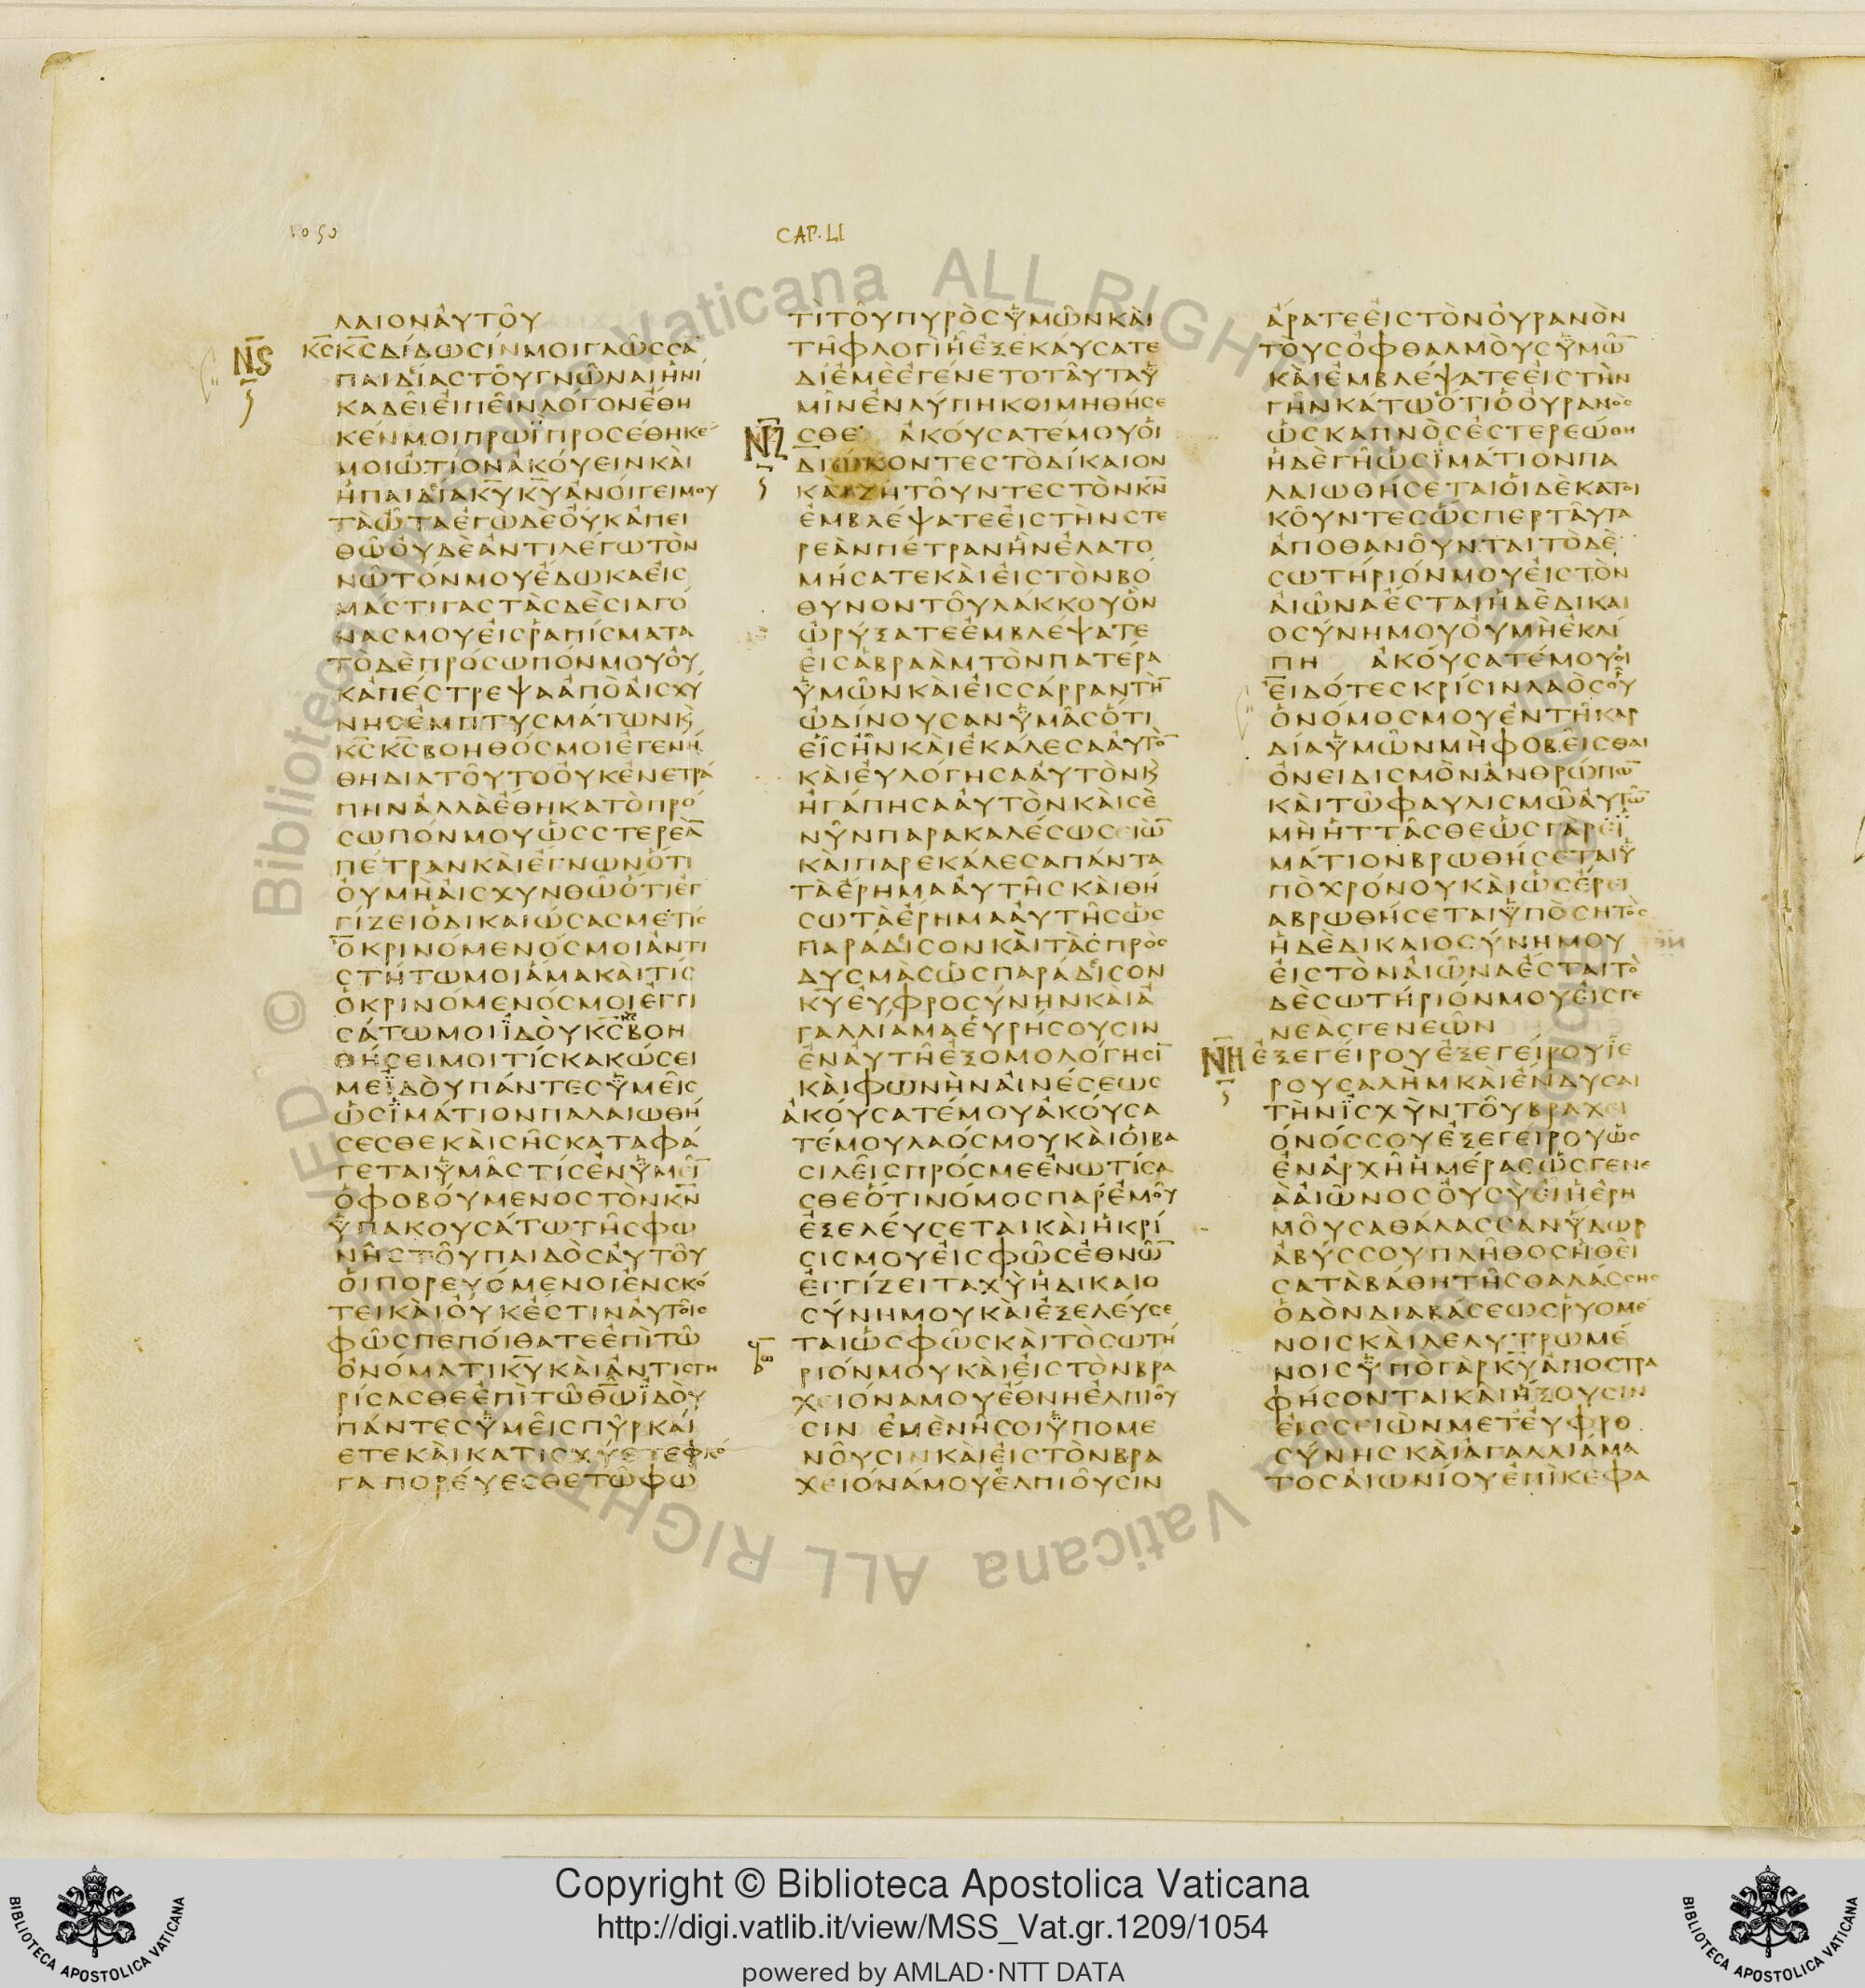 1050
CAP. LI
ΛΑΙΟΝΑΥΤΟΥ
Ν͞Ϛ
Κ͞ϹΚ͞ϹΔΙΔΩϹΙΝΜΟΙΓΛΩϹϹΑ
ΠΑΙΔΙΑϹΤΟΥΓΝΩΝΑΙΗΝΙ
ΚΑΔΕΙΕΙΠΕΙΝΛΟΓΟΝΕΘΗ
ΚΕΝΜΟΙΠΡΩΪΠΡΟϹΕΘΗΚΕ
ΜΟΙΩΤΙΟΝΑΚΟΥΕΙΝΚΑΙ
ΗΠΑΙΔΙΑΚ͞ΥΚ͞ΥΑΝΟΙΓΕΙΜΟΥ
ΤΑΩΤΑΕΓΩΔΕΟΥΚΑΠΕΙ
ΘΩΟΥΔΕΑΝΤΙΛΕΓΩΤΟΝ
ΝΩΤΟΝΜΟΥΕΔΩΚΑΕΙϹ
ΜΑϹΤΙΓΑϹΤΑϹΔΕϹΙΑΓΟ
ΝΑϹΜΟΥΕΙϹΡΑΠΙϹΜΑΤΑ
ΤΟΔΕΠΡΟϹΩΠΟΝΜΟΥΟΥ
ΚΑΠΕϹΤΡΕΨΑΑΠΟΑΙϹΧΥ
ΝΗϹΕΜΠΤΥϹΜΑΤΩΝΚ
Κ͞ϹΚ͞ϹΒΟΗΘΟϹΜΟΙΕΓΕΝΗ
ΘΗΔΙΑΤΟΥΤΟΟΥΚΕΝΕΤΡΑ
ΠΗΝΑΛΛΑΕΘΗΚΑΤΟΠΡΟ
ϹΩΠΟΝΜΟΥΩϹϹΤΕΡΕΑ̅
ΠΕΤΡΑΝΚΑΙΕΓΝΩΝΟΤΙ
ΟΥΜΗΑΙϹΧΥΝΘΩΟΤΙΕΓ
ΓΙΖΕΙΟΔΙΚΑΙΩϹΑϹΜΕΤΙϹ
ΟΚΡΙΝΟΜΕΝΟϹΜΟΙΑΝΤΙ
ϹΤΗΤΩΜΟΙΑΜΑΚΑΙΤΙϹ
ΟΚΡΙΝΟΜΕΝΟϹΜΟΙΕΓΓΙ
ϹΑΤΩΜΟΙΪΔΟΥΚ͞ϹΒΟΗ
ΘΗϹΕΙΜΟΙΤΙϹΚΑΚΩϹΕΙ
ΜΕΪΔΟΥΠΑΝΤΕϹΫΜΕΙϹ
ΩϹΪΜΑΤΙΟΝΠΑΛΑΙΩΘΗ
ϹΕϹΘΕΚΑΙϹΗϹΚΑΤΑΦΑ
ΓΕΤΑΙΫΜΑϹΤΙϹΕΝΫΜΕΙ̅
ΟΦΟΒΟΥΜΕΝΟϹΤΟΝΚ͞Ν
ΫΠΑΚΟΥϹΑΤΩΤΗϹΦΩ
ΝΗϹΤΟΥΠΑΙΔΟϹΑΥΤΟΥ
ΟΙΠΟΡΕΥΟΜΕΝΟΙΕΝϹΚΟ
ΤΕΙΚΑΙΟΥΚΕϹΤΙΝΑΥΤΟΙϹ
ΦΩϹΠΕΠΟΙΘΑΤΕΕΠΙΤΩ
ΟΝΟΜΑΤΙΚ͞ΥΚΑΙΑΝΤΙϹΤΗ
ΡΙϹΑϹΘΕΕΠΙΤΩΘ͞ΩΪΔΟΥ
ΠΑΝΤΕϹΫΜΕΙϹΠΥΡΚΑΙ
ΕΤΕΚΑΙΚΑΤΙϹΧΥΕΤΕΦΛΟ
ΓΑΠΟΡΕΥΕϹΘΕΤΩΦΩ
ΤΙΤΟΥΠΥΡΟϹΫΜΩΝΚΑΙ
ΤΗΦΛΟΓΙΗΕΞΕΚΑΥϹΑΤΕ
ΔΙΕΜΕΕΓΕΝΕΤΟΤΑΥΤΑΫ
ΜΙΝΕΝΛΥΠΗΚΟΙΜΗΘΗϹΕ
Ν͞Ζ
ϹΘΕ ΑΚΟΥϹΑΤΕΜΟΥΟΙ
ΔΙΩΚΟΝΤΕϹΤΟΔΙΚΑΙΟΝ
ΚΑΙΖΗΤΟΥΝΤΕϹΤΟΝΚ͞Ν
ΕΜΒΛΕΨΑΤΕΕΙϹΤΗΝϹΤΕ
ΡΕΑΝΠΕΤΡΑΝΗΝΕΛΑΤΟ
ΜΗϹΑΤΕΚΑΙΕΙϹΤΟΝΒΟ
ΘΥΝΟΝΤΟΥΛΑΚΚΟΥΟΝ
ΩΡΥΞΑΤΕΕΜΒΛΕΨΑΤΕ
ΕΙϹΑΒΡΑΑΜΤΟΝΠΑΤΕΡΑ
ΫΜΩΝΚΑΙΕΙϹϹΑΡΡΑΝΤΗ̅
ΩΔΙΝΟΥϹΑΝΫΜΑϹΟΤΙ
ΕΙϹΗΝΚΑΙΕΚΑΛΕϹΑΑΥΤΟ̅
ΚΑΙΕΥΛΟΓΗϹΑΑΥΤΟΝΚ
ΗΓΑΠΗϹΑΑΥΤΟΝΚΑΙϹΕ
ΝΥΝΠΑΡΑΚΑΛΕϹΩϹΕΙΩ̅
ΚΑΙΠΑΡΕΚΑΛΕϹΑΠΑΝΤΑ
ΤΑΕΡΗΜΑΑΥΤΗϹΚΑΙΘΗ
ϹΩΤΑΕΡΗΜΑΑΥΤΗϹΩϹ
ΠΑΡΑΔΙϹΟΝΚΑΙΤΑϹΠΡΟϹ
ΔΥϹΜΑϹΩϹΠΑΡΑΔΙϹΟΝ
Κ͞ΥΕΥΦΡΟϹΥΝΗΝΚΑΙΑ
ΓΑΛΛΙΑΜΑΕΥΡΗϹΟΥϹΙΝ
ΕΝΑΥΤΗΕΞΟΜΟΛΟΓΗϹΙ̅
ΚΑΙΦΩΝΗΝΑΙΝΕϹΕΩϹ
ΑΚΟΥϹΑΤΕΜΟΥΑΚΟΥϹΑ
ΤΕΜΟΥΛΑΟϹΜΟΥΚΑΙΟΙΒΑ
ϹΙΛΕΙϹΠΡΟϹΜΕΕΝΩΤΙϹΑ
ϹΘΕΟΤΙΝΟΜΟϹΠΑΡΕΜΟΥ
ΕΞΕΛΕΥϹΕΤΑΙΚΑΙΗΚΡΙ
ϹΙϹΜΟΥΕΙϹΦΩϹΕΘΝΩ̅
ΕΓΓΙΖΕΙΤΑΧΥΗΔΙΚΑΙΟ
ϹΥΝΗΜΟΥΚΑΙΕΞΕΛΕΥϹΕ
ΤΑΙΩϹΦΩϹΚΑΙΤΟϹΩΤΗ
ΡΙΟΝΜΟΥΚΑΙΕΙϹΤΟΝΒΡΑ
ΧΕΙΟΝΑΜΟΥΕΘΝΗΕΛΠΙΟΥ
ϹΙΝ ΕΜΕΝΗϹΟΙΫΠΟΜΕ
ΝΟΥϹΙΝΚΑΙΕΙϹΤΟΝΒΡΑ
ΧΕΙΟΝΑΜΟΥΕΛΠΙΟΥϹΙΝ
ΑΡΑΤΕΕΙϹΤΟΝΟΥΡΑΝΟΝ
ΤΟΥϹΟΦΘΑΛΜΟΥϹΫΜΩ̅
ΚΑΙΕΜΒΛΕΨΑΤΕΕΙϹΤΗΝ
ΓΗΝΚΑΤΩΟΤΙΟΟΥΡΑΝΟϹ
ΩϹΚΑΠΝΟϹΕϹΤΕΡΕΩΘΗ
ΗΔΕΓΗΩϹΪΜΑΤΙΟΝΠΑ
ΛΑΙΩΘΗϹΕΤΑΙΟΙΔΕΚΑΤΟΙ
ΚΟΥΝΤΕϹΩϹΠΕΡΤΑΥΤΑ
ΑΠΟΘΑΝΟΥΝΤΑΙΤΟΔΕ
ϹΩΤΗΡΙΟΝΜΟΥΕΙϹΤΟΝ
ΑΙΩΝΑΕϹΤΑΙΗΔΕΔΙΚΑΙ
ΟϹΥΝΗΜΟΥΟΥΜΗΕΚΛΙ
ΠΗ ΑΚΟΥϹΑΤΕΜΟΥΟΙ
ΕΙΔΟΤΕϹΚΡΙϹΙΝΛΑΟϹΟΥ
ΟΝΟΜΟϹΜΟΥΕΝΤΗΚΑΡ
ΔΙΑΫΜΩΝΜΗΦΟΒΕΙϹΘΑΙ
ΟΝΕΙΔΙϹΜΟΝΑΝΘΡΩΠΩ̅
ΚΑΙΤΩΦΑΥΛΙϹΜΩΑΥΤΩ̅
ΜΗΗΤΤΑϹΘΕΩϹΓΑΡΕΪ
ΜΑΤΙΟΝΒΡΩΘΗϹΕΤΑΙΫ
ΠΟΧΡΟΝΟΥΚΑΙΩϹΕΡΕΙ
ΑΒΡΩΘΗϹΕΤΑΙΫΠΟϹΗΤΟϹ
ΗΔΕΔΙΚΑΙΟϹΥΝΗΜΟΥ
ΕΙϹΤΟΝΑΙΩΝΑΕϹΤΑΙΤΟ
ΔΕϹΩΤΗΡΙΟΝΜΟΥΕΙϹΓΕ
ΝΕΑϹΓΕΝΕΩΝ
Ν͞Η
ΕΞΕΓΕΙΡΟΥΕΞΕΓΕΙΡΟΥΪΕ
ΡΟΥϹΑΛΗΜΚΑΙΕΝΔΥϹΑΙ
ΤΗΝΪϹΧΥΝΤΟΥΒΡΑΧΕΙ
ΟΝΟϹϹΟΥΕΞΕΓΕΙΡΟΥΩϹ
ΕΝΑΡΧΗΗΜΕΡΑϹΩϹΓΕΝΕ
ΑΑΙΩΝΟϹΟΥϹΥΕΙΗΕΡΗ
ΜΟΥϹΑΘΑΛΑϹϹΑΝΫΔΩΡ
ΑΒΥϹϹΟΥΠΛΗΘΟϹΗΘΕΙ
ϹΑΤΑΒΑΘΗΤΗϹΘΑΛΑϹϹΗϹ
ΟΔΟΝΔΙΑΒΑϹΕΩϹΡΥΟΜΕ
ΝΟΙϹΚΑΙΛΕΛΥΤΡΩΜΕ
ΝΟΙϹΫΠΟΓΑΡΚ͞ΥΑΠΟϹΤΡΑ
ΦΗϹΟΝΤΑΙΚΑΙΗΞΟΥϹΙΝ
ΕΙϹϹΕΙΩΝΜΕΤΕΥΦΡΟ
ϹΥΝΗϹΚΑΙΑΓΑΛΛΙΑΜΑ
ΤΟϹΑΙΩΝΙΟΥΕΠΙΚΕΦΑ
© Biblioteca Apostolica Vaticana ALL RIGHTS RESERVED
Copyright © Biblioteca Apostolica Vaticana
http://digi.vatlib.it/view/MSS_Vat.gr.1209/1054
powered by AMLAD·NTT DATA
BIBLIOTECA APOSTOLICA VATICANA
BIBLIOTECA APOSTOLICA VATICANA